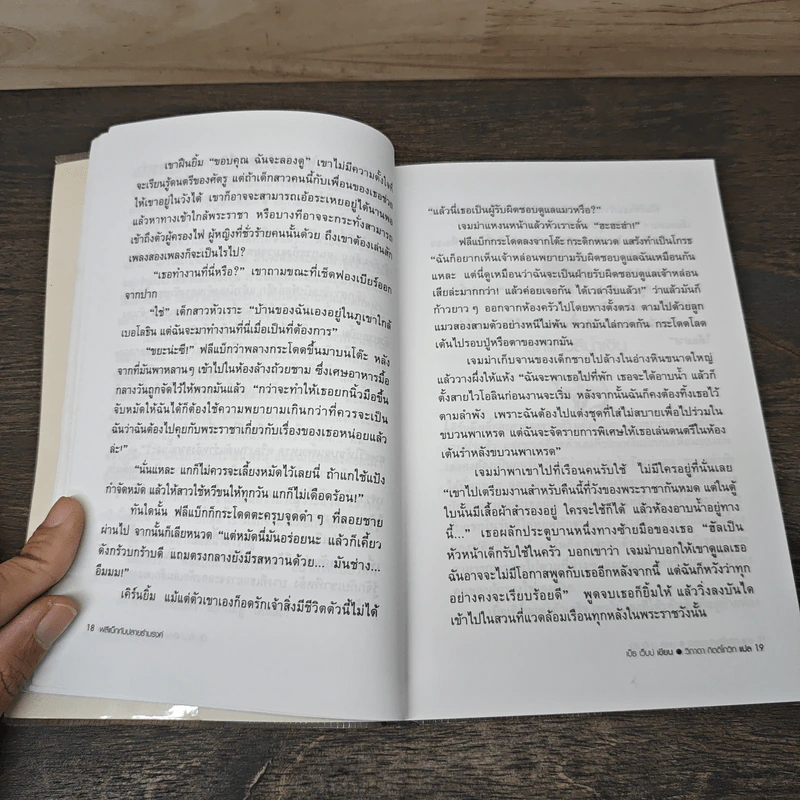 เขาฝืนยิ้ม “ขอบคุณ ฉันจะลองดู” เขาไม่มีความตั้งใจ
จะเรียนรู้ดนตรีของศัตรู แต่ถ้าเด็กสาวคนนี้กับเพื่อนของเธอช่วย
ให้เขาอยู่ในวังได้ เขาก็อาจจะสามารถเอ้อระเหยอยู่ได้นานพอ
แล้วหาทางเข้าใกล้พระราชา หรือบางทีอาจจะกระทั่งสามารถ
เข้าถึงตัวผู้ครองไฟ ผู้หญิงที่ชั่วร้ายคนนั้นด้วย ถึงเขาต้องเล่นสัก
เพลงสองเพลงก็จะเป็นไรไป?
“เธอทำงานที่นี่หรือ?” เขาถามขณะที่เช็ดฟองเบียร์ออก
จากปาก
“ใช่” เด็กสาวหัวเราะ “บ้านของฉันเองอยู่ในภูเขาใกล้
เบอโลธิน แต่ฉันจะมาทำงานที่นี่เมื่อเป็นที่ต้องการ”
“ขยะน่ะซี!” ฟลีแบ็กว่าพลางกระโดดขึ้นมาบนโต๊ะ หลัง
จากที่มีพาหลานๆ เข้าไปในห้องล้างถ้วยชาม ซึ่งเศษอาหารมื้อ
กลางวันถูกจัดไว้ให้พวกมันแล้ว “กว่าจะทำให้เธอยกนิ้วมือขึ้น
จับหมัดให้ฉันได้ก็ต้องใช้ความพยายามเกินกว่าที่ควรจะเป็น
ฉันว่าฉันต้องไปคุยกับพระราชาเกี่ยวกับเรื่องของเธอหน่อยแล้ว
ล่ะ!”
“นั่นแหละ แกก็ไม่ควรจะเลี้ยงหมัดไว้เลยนี่ ถ้าแกใช้แป้ง
กำจัดหมัด แล้วให้สาวใช้หวีขนให้ทุกวัน แกก็ไม่เดือดร้อน!”
ทันใดนั้น ฟลีแบ็กก็กระโดดตะครุบจุดดำๆ ที่ลอยชาย
ผ่านไป จากนั้นก็เลียหนวด “แต่หมัดนี่มันอร่อยนะ แล้วก็เคี้ยว
ดังกร้วบกร้าบดี แถมตรงกลางยังมีรสหวานด้วย... มันช่าง...
อืมมม!”
เคิร์นยิ้ม แม้แต่ตัวเขาเองก็อดรักเจ้าสิ่งมีชีวิตตัวนี้ไม่ได้
18 ฟลีแบ็กกับปลายธำมรงค์
“แล้วนี่เธอเป็นผู้รับผิดชอบดูแลแมวหรือ?”
เจมม่าแหงนหน้าแล้วหัวเราะลั่น “ฮะฮะฮ่า!”
ฟลีแบ็กกระโดดลงจากโต๊ะ กระดิกหนวด แสร้งทำเป็นโกรธ
“ฉันก็อยากเห็นเจ้าหล่อนพยายามรับผิดชอบดูแลฉันเหมือนกัน
แหละ แต่นี่ดูเหมือนว่าฉันจะเป็นฝ่ายรับผิดชอบดูแลเจ้าหล่อน
เสียล่ะมากกว่า! แล้วค่อยเจอกัน ได้เวลางีบแล้ว!” ว่าแล้วมันก็
ก้าวยาวๆ ออกจากห้องครัวไปโดยหางตั้งตรง ตามไปด้วยลูก
แมวสองสามตัวอย่างหนีไม่พ้น พวกมันไล่กวดกัน กระโดดโลด
เต้นไปรอบปู่หรือตาของพวกมัน
เจมม่าเก็บจานของเด็กชายไปล้างในอ่างหินขนาดใหญ่
แล้ววางผึ่งให้แห้ง “ฉันจะพาเธอไปที่พัก เธอจะได้อาบน้ำ แล้วก็
ตั้งสายไวโอลินก่อนงานจะเริ่ม หลังจากนั้นฉันก็คงต้องทิ้งเธอไว้
ตามลำพัง เพราะฉันต้องไปแต่งชุดที่ใส่ไม่สบายเพื่อไปร่วมใน
ขบวนพาเหรด แต่ฉันจะจัดรายการพิเศษให้เธอเล่นดนตรีในห้อง
เต้นรำหลังขบวนพาเหรด”
เจมม่าพาเขาไปที่เรือนคนรับใช้ ไม่มีใครอยู่ที่นั่นเลย
“เขาไปเตรียมงานสำหรับคืนนี้ที่วังของพระราชากันหมด แต่ในตู้
ใบนั้นมีเสื้อผ้าสำรองอยู่ ใครจะใช้ก็ได้ แล้วห้องอาบน้ำอยู่ทาง
นี้...” เธอผลักประตูบานหนึ่งทางซ้ายมือของเธอ “ฮัลเป็น
หัวหน้าเด็กรับใช้ในครัว บอกเขาว่า เจมม่าบอกให้เขาดูแลเธอ
ฉันอาจจะไม่มีโอกาสพูดกับเธออีกหลังจากนี้ แต่ฉันก็หวังว่าทุก
อย่างคงจะเรียบร้อยดี” พูดจบเธอก็ยิ้มให้ แล้ววิ่งลงบันได
เข้าไปในสวนที่แวดล้อมเรือนทุกหลังในพระราชวังนั้น
เบ็ธ เว็บบ์ เขียน ● วิภาดา กิตติโกวิท แปล 19